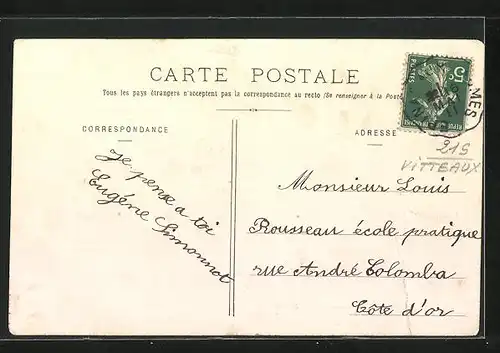 CARTE POSTALE
Tous les pays étrangers n'acceptent pas la correspondance au recto (Se renseigner à la Poste
CORRESPONDANCE
ADRESSE
5c
POSTES
RÉPUBLIQUE FRANÇAISE
MES
215
VITTEAUX
Je pense a toi
Eugénie Simonnot
Monsieur Louis
Rousseau école pratique
rue André Colomba
Côte d'or